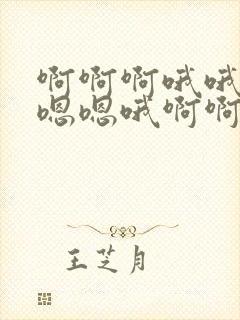 啊啊啊哦哦
嗯嗯哦啊啊
王芝月